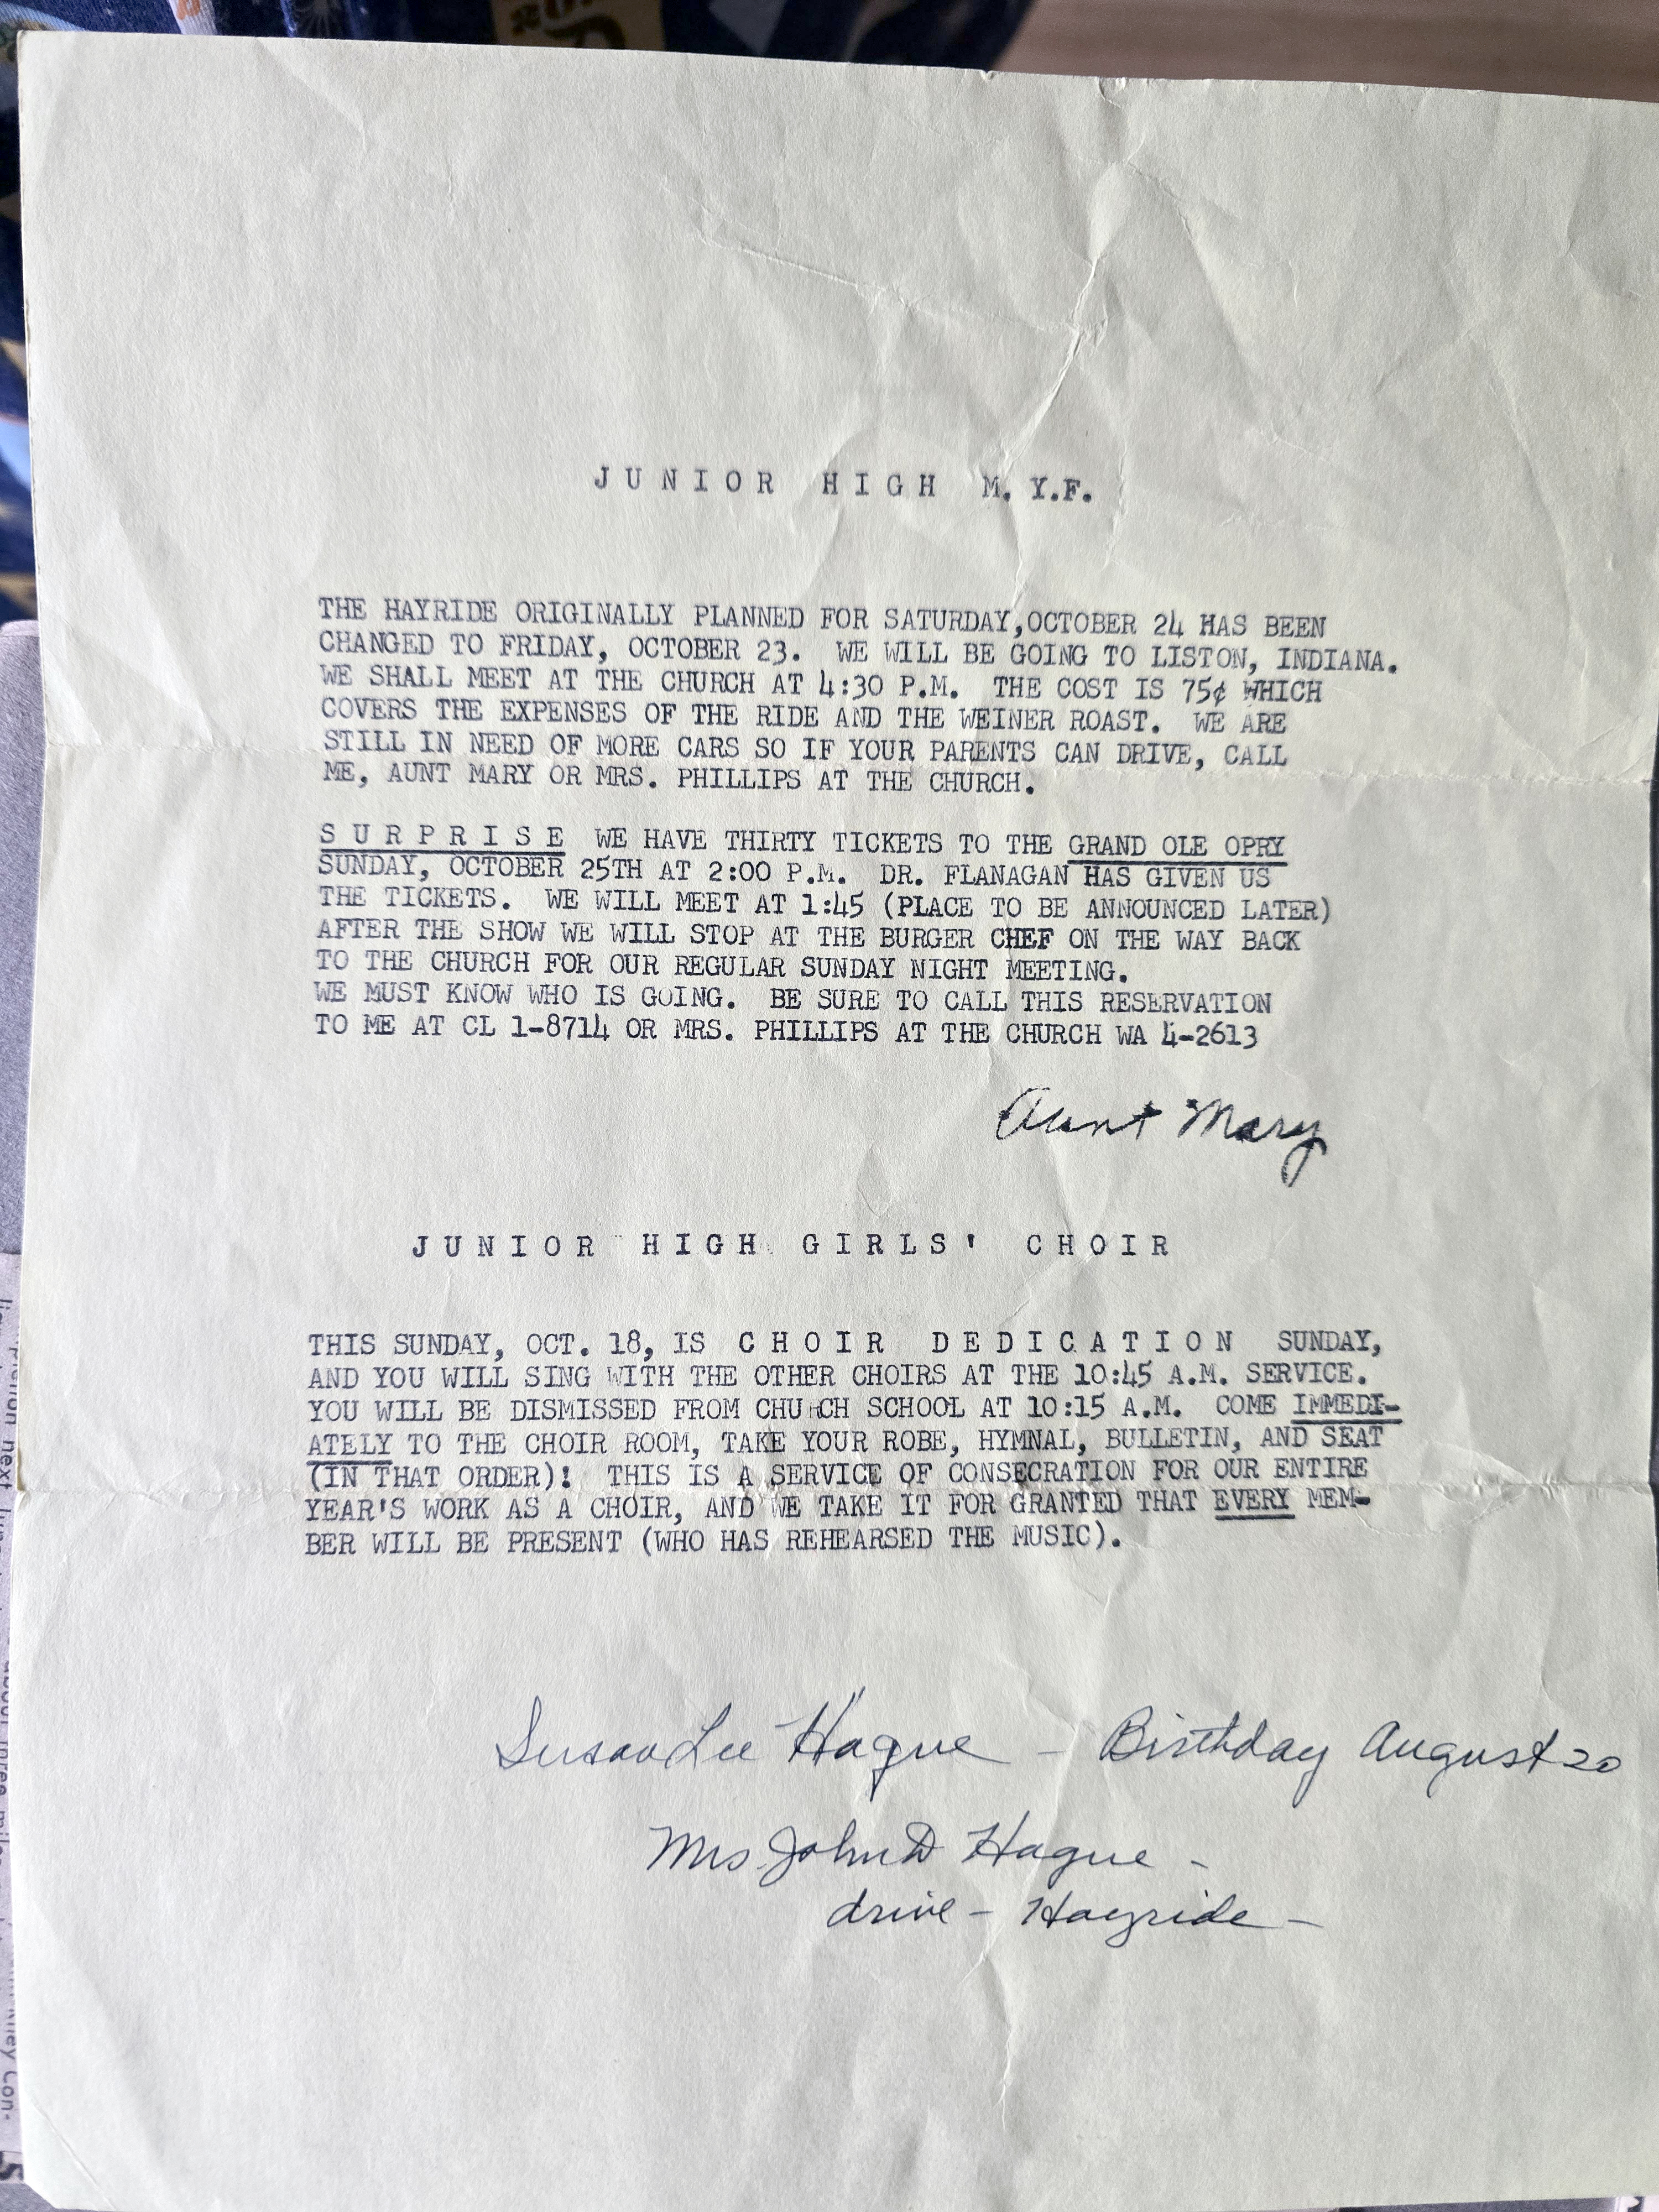 JUNIOR HIGH M.Y.F.
THE HAYRIDE ORIGINALLY PLANNED FOR SATURDAY,OCTOBER 24 HAS BEEN
CHANGED TO FRIDAY, OCTOBER 23. WE WILL BE GOING TO LISTON, INDIANA.
WE SHALL MEET AT THE CHURCH AT 4:30 P.M. THE COST IS 75¢ WHICH
COVERS THE EXPENSES OF THE RIDE AND THE WEINER ROAST. WE ARE
STILL IN NEED OF MORE CARS SO IF YOUR PARENTS CAN DRIVE, CALL
ME, AUNT MARY OR MRS. PHILLIPS AT THE CHURCH.
SURPRISE WE HAVE THIRTY TICKETS TO THE GRAND OLE OPRY
SUNDAY, OCTOBER 25TH AT 2:00 P.M. DR. FLANAGAN HAS GIVEN US
THE TICKETS. WE WILL MEET AT 1:45 (PLACE TO BE ANNOUNCED LATER)
AFTER THE SHOW WE WILL STOP AT THE BURGER CHEF ON THE WAY BACK
TO THE CHURCH FOR OUR REGULAR SUNDAY NIGHT MEETING.
WE MUST KNOW WHO IS GOING. BE SURE TO CALL THIS RESERVATION
TO ME AT CL 1-8714 OR MRS. PHILLIPS AT THE CHURCH WA 4-2613
Aunt Mary
JUNIOR HIGH GIRLS' CHOIR
THIS SUNDAY, OCT. 18, IS CHOIR DEDICATION SUNDAY,
AND YOU WILL SING WITH THE OTHER CHOIRS AT THE 10:45 A.M. SERVICE.
YOU WILL BE DISMISSED FROM CHURCH SCHOOL AT 10:15 A.M. COME IMMEDI-
ATELY TO THE CHOIR ROOM, TAKE YOUR ROBE, HYMNAL, BULLETIN, AND SEAT
(IN THAT ORDER)! THIS IS A SERVICE OF CONSECRATION FOR OUR ENTIRE
YEAR'S WORK AS A CHOIR, AND WE TAKE IT FOR GRANTED THAT EVERY MEM-
BER WILL BE PRESENT (WHO HAS REHEARSED THE MUSIC).
Susan Lee Hague - Birthday August 20
Mrs John D Hague -
drive - Hayride -